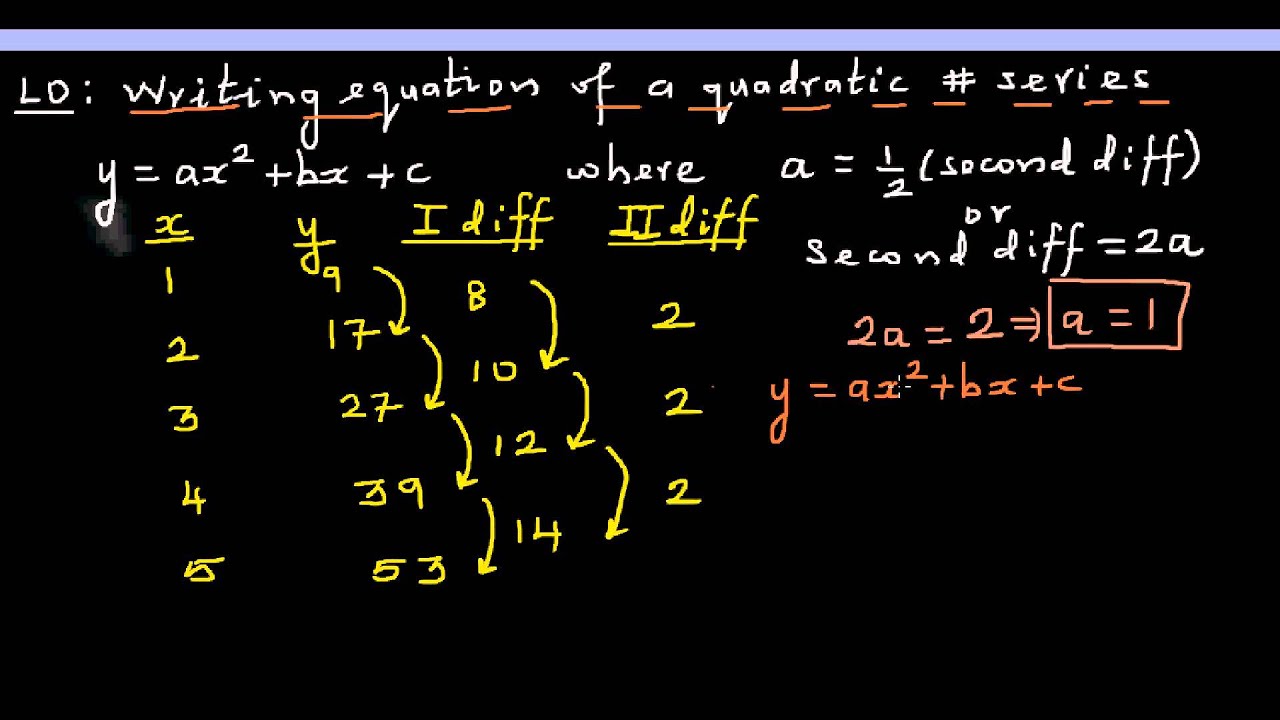 LO: Writing equation of a quadratic # series
y = ax² + bx + c where a = 1/2 (second diff)
or
second diff = 2a
x y I diff II diff
1 9 8 2
2 17 10 2
3 27 12 2
4 39 14
5 53
2a = 2 ⇒ a = 1
y = ax² + bx + c